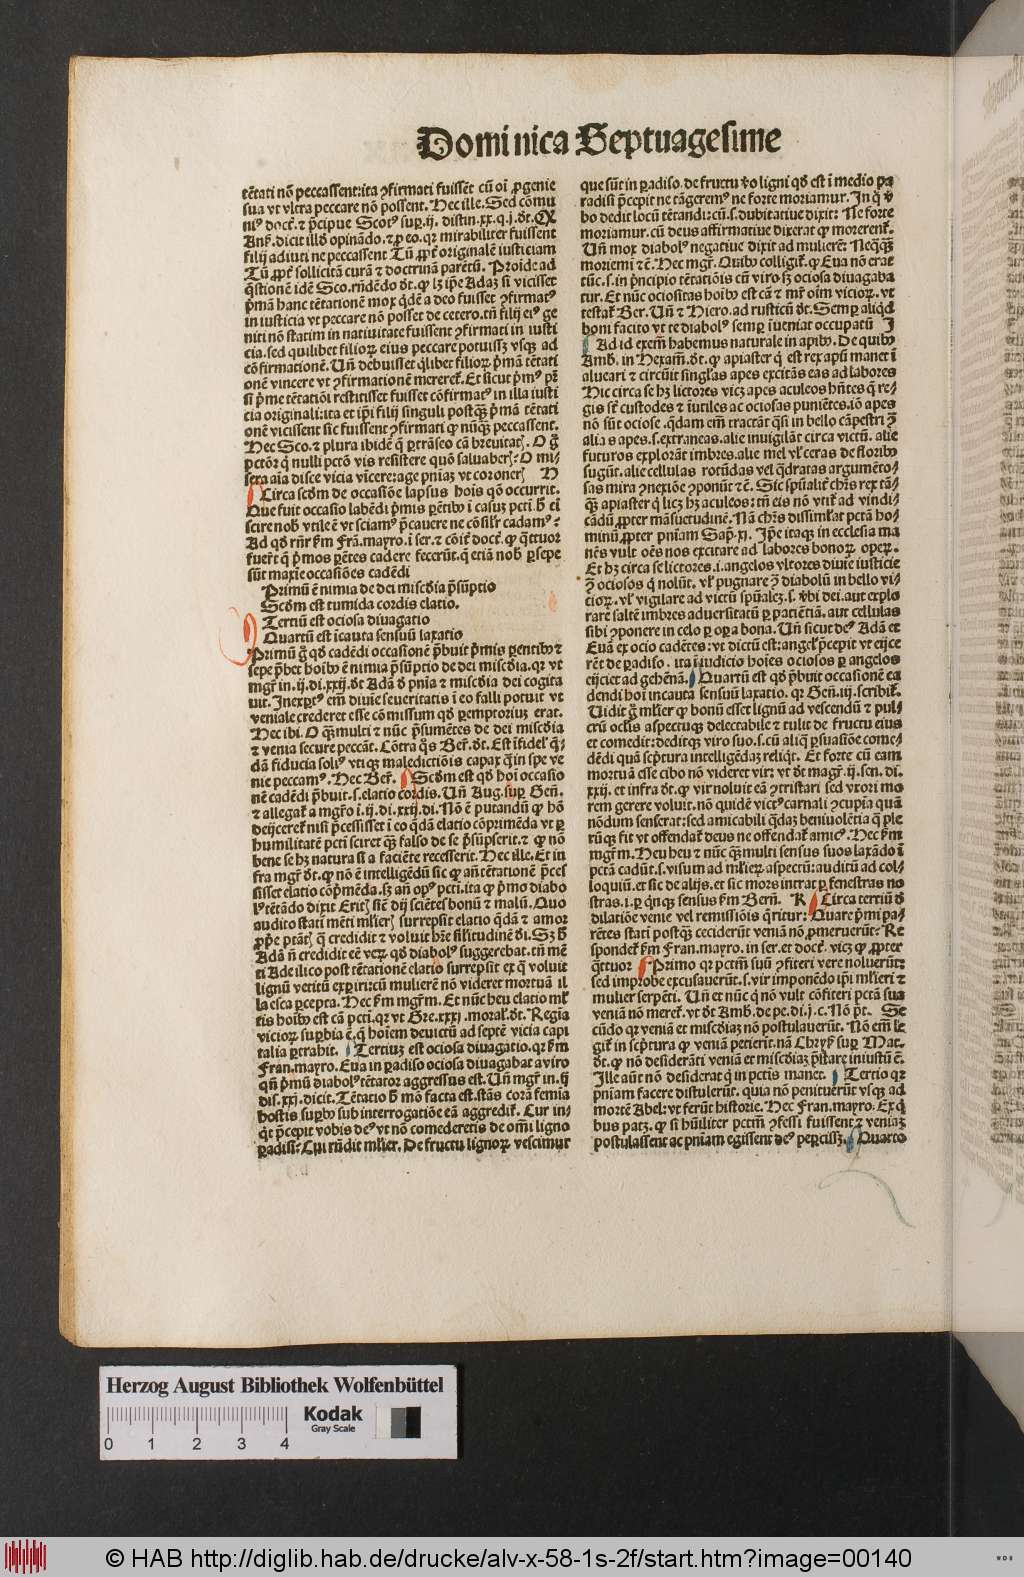 Dominica Septuagesime
tētati nō peccassent: ita ꝯfirmati fuissēt cū oī ꝓgenie
sua vt vltra peccare nō possent. Hec ille. Sed cōmu
filij adiuti ne peccassent Tū originalē iusticiam
Tū sollicitā curā ⁊ doctrinā parētū. Proide ad
in iusticia vt peccare nō posset de cetero. tñ filij eiꝰ ge
niti nō statim in natiuitate fuissent ꝯfirmati in iusti
cia. sed quilibet filioꝝ eius peccare potuissꝫ vsqꝫ ad
cōfirmationē. Uñ debuisset q̄libet filioꝝ p̄mā tētati
onē vincere vt ꝯfirmationē
si p̄me tētatiōi restitisset fuisset cōfirmatꝰ in illa iusti
cia originali: ita et ip̄i filij singuli postqꝫ p̄mā tētati
onē vicissent sic fuissent ꝯfirmati ꝙ nūqꝫ peccassent.
sera aīa disce vicia vīcere: age pniaꝫ vt
Circa scdm de occasiōe lapsus hoīs qō occurrit.
Que fuit occasio labēdi p̄mis
scire nob̄ vtile
Ad qd Frā. mayro. ī ser. ⁊
cadere fecerūt. q̄ etiā nob̄ ꝑsepe
sūt maxīe occasiōes cadēdi
Primū ē nimia de dei miscd̄ia p̄sūptio
Scdm est tumida cordis elatio.
Tertiū est ociosa diuagatio
Quartū est īcauta sensuū laxatio
Primū qd cadēdi occasionē p̄buit p̄mis ꝑentibꝰ ⁊
sepe p̄bet hoībꝰ ē nimia p̄sūptio de dei miscd̄ia. qr vt
mgr̄ in .ij. di. xxij. dt Adā d pnīa ⁊ miscd̄ia dei cogita
uit. Inexptꝰ em̄ diuīe seueritatis ī eo falli potuit vt
veniale crederet esse cōmissum qd ꝑemptoriuꝫ erat.
Hec ibi. O qꝫ multi ⁊ nūc p̄sumētes de dei miscd̄ia
⁊ venia secure peccāt. Cōtra q̄s Ber. dt. Est īfidel q̄
dā fiducia soliꝰ vtiqꝫ maledictiōis capax in spe ve
nie peccamꝰ. Hec Ber. Scdm est qd hoī occasio
nē cadēdi p̄buit. s. elatio cordis. Uñ Aug. suꝑ Geñ.
⁊ allegat a mgr̄o ī .ij. di. xxij. di. Nō ē putandū ꝙ hō
deijceret nisi p̄cessisset ī eo q̄dā elatio cōprimēda vt ꝑ
humilitatē pcti sciret qꝫ falso de se p̄sūpserit. ⁊ ꝙ nō
bene se hꝫ natura si a faciēte recesserit. Hec ille. Et in
fra mgr̄ dt. ꝙ nō ē intelligēdū sic ꝙ añ tētationē p̄ces
sisset elatio cōpmēda. sꝫ añ opꝰ pcti. ita ꝙ p̄mo diabo
lꝰ tētādo dixit Eritis sic dij sciētes bonū ⁊ malū. Quo
audito stati mēti surrepsit elatio q̄dā ⁊ amor
Adā ñ credidit eē veꝝ qd diabolꝰ suggerebat. tñ mē
ti Ade ilico post tētationē elatio surrepsit ex q̄ voluit
lignū vetitū exꝑiri: cū mulierē nō videret mortuā il
la esca ꝑcepta. Hec mgr̄m. Et nūc heu elatio
tis hoībꝰ est cā pcti. qr vt Gre. xxxj. moral. dt. Regia
vicioꝝ suꝑbia ē. q̄ hoīem deuictū ad septē vicia capi
talia ꝑtrahit. Tertiuꝫ est ociosa diuagatio. qr
Fran. mayro. Eua in ꝑadiso ociosa diuagabat a viro
qñ p̄mū diabolꝰ tētator aggressus est. Uñ mgr̄ in .ij
dis. xxj. dicit. Tētatio mō facta est. stās corā femia
hostis suꝑbꝰ sub interrogatiōe eā aggredit. Cur in
q̄t p̄cepit vobis deꝰ vt nō comederetis de omī ligno
ꝑadisi? Cui rn̄dit mlier. De fructu lignoꝝ vescimur
que sūt in ꝑadiso. de fructu vo ligni qd est ī medio pa
radisi p̄cepit ne tāgeremꝰ ne forte moriamur. In
bo dedit locū tētandi: cū .s. dubitatiue dixit: Ne forte
moriamur. cū deus affirmatiue dixerat ꝙ morerent.
Uñ mox diabolꝰ negatiue dixit ad mulierē: Neq̄qꝫ
moriemi ⁊c̄. Hec mgr̄. Quibꝰ colligit. ꝙ Eua nō erat
tūc .s. in p̄ncipio tētatiōis cū viro. sꝫ ociosa diuagaba
tur. Et nūc ociositas hoībꝰ est cā ⁊ mr̄ oīm vicioꝝ. vt
testat Ber. Uñ ⁊ Hiero. ad rusticū dt. Semꝑ aliqd
boni facito vt te diabolꝰ semꝑ īueniat occupatū
Ad id habemus naturale in apibꝰ. De quibꝰ
Amb. in Hexam. dt. ꝙ apiaster q̄ est rex apū manet ī
alueari ⁊ circuit singlas apes excitās eas ad labores
Hic circa se hꝫ lictores vicꝫ apes aculeos hñtes q̄ re
gis st custodes ⁊ īutiles ac ociosas puniētes. iō apes
nō sūt ociose. qdam em̄ tractāt q̄si in bello cāpestri
alias apes .s. extraneas. alie inuigilāt circa victū. alie
futuros explorāt imbres. alie mel vl ceras de floribꝰ
sugūt. alie cellulas rotūdas vel q̄dratas argumēto
sas mira ꝯnexiōe ꝯponūt ⁊c̄. Sic spūalit chrs rex
qꝫ apiaster q̄ licꝫ hꝫ aculeos: tñ eis nō vtit ad vindi
cādū ꝓpter māsuetudinē. Nā chrs dissimlat pctā ho
minū ꝓpter pniam Sap. xj. Ip̄e itaqꝫ in ecclesia ma
nēs vult oēs nos excitare ad labores bonoꝝ opeꝝ.
Et hꝫ circa se lictores .i. angelos vltores diuīe iusticie
ociosos q̄ nolūt. vl pugnare diabolū in bello vi
cioꝝ. vl vigilare ad victū spūaleꝫ .s. vbi dei. aut explo
rare saltē imbres aduersitatū ꝑ patiētiā. aut cellulas
sibi ꝯponere in celo ꝑ oꝑa bona. Uñ sicut deꝰ Adā et
Euā ex ocio cadētes: vt dictū est: angelꝰ p̄cepit vt eijce
rēt de ꝑadiso. ita ī iudicio hoīes ociosos ꝑ angelos
eijciet ad gehēnā. Quartū est qd p̄buit occasionē ca
dendi hoī incauta sensuū laxatio. qr Geñ. iij. scribit.
Uidit mlier ꝙ bonū esset lignū ad vescendū ⁊ pul
crū oclis aspectuqꝫ delectabile ⁊ tulit de fructu eius
et comedit: deditqꝫ viro suo. s. cū aliq̄ ꝑsuasiōe come
dēdi quā scptura intelligēdaꝫ reliqt. Et forte cū eam
mortuā esse cibo nō videret vir: vt dt magr̄ .ij. sen. di.
xxij. et infra dt. ꝙ vir noluit eā ꝯtristari sed vxori mo
rem gerere voluit. nō quidē victꝰ carnali ꝯcupīa quā
nōdum senserat: sed amicabili q̄daꝫ beniuolētia q̄ ple
rūqꝫ fit vt offendat deus ne offendat amicꝰ. Hec
mgr̄m. Heu heu ⁊ nūc qꝫ multi sensus suos laxādo ī
pctā cadūt. s. visum ad mlieꝝ aspectū: auditū ad col
loquiū. et sic de alijs. et sic mors intrat ꝑ fenestras no
stras .i. ꝑ q̄nqꝫ sensus Berñ. K Circa tertiū d
dilatiōe venie vel remissiōis q̄ritur: Quare p̄mi pa
rētes stati postqꝫ ceciderūt veniā nō ꝓmeruerūt: Re
spondet Fran. mayro. in ser. et doct. vicꝫ ꝙ ꝓpter
q̄ttuor Primo qr pctm̄ suū ꝯfiteri vere noluerūt:
sed improbe excusauerūt. s. vir imponēdo ip̄i mlieri ⁊
mulier serpēti. Uñ et nūc q̄ nō vult cōfiteri pctā sua
veniā nō meret. vt dt Amb. de pe. di. j. c. Nō pt. Se
cūdo qr veniā et miscd̄iaꝫ nō postulauerūt. Nō em̄ le
git in scptura ꝙ veniā petierit. nā Chrys. suꝑ Mat.
dt. ꝙ nō desiderāti veniā et miscd̄iaꝫ p̄stare iniustū ē.
Ille aūt nō desiderat q̄ in pctis manet. Tertio qr
pniam facere distulerūt. quia nō penituerūt vsqꝫ ad
mortē Abel: vt ferūt historie. Hec Fran. mayro. Ex q̄
bus patꝫ. ꝙ si hūiliter pctm̄ ꝯfessi fuissent ⁊ veniaꝫ
postulassent ac pniam egissent deꝰ peꝑcissꝫ. Quarto
Herzog August Bibliothek Wolfenbüttel
Kodak
Gray Scale
0 1 2 3 4
© HAB http://diglib.hab.de/drucke/alv-x-58-1s-2f/start.htm?image=00140